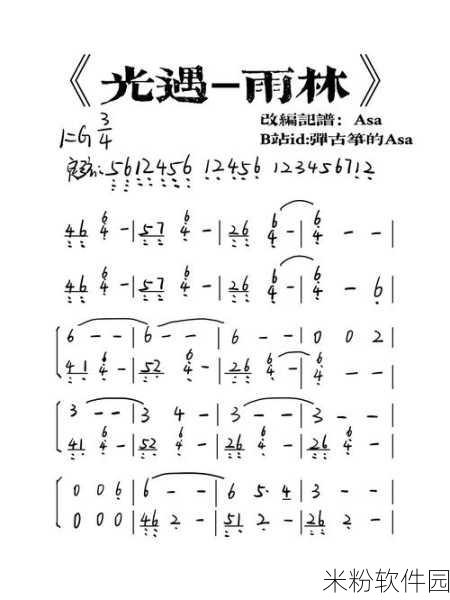 《光遇-雨林》
改編記譜：Asa
B站id:彈古筝的Asa
1=G 3/4
定弦: 5612456 12456 123456712
46 6/4 - | 57 6/4 - | 26 6/4 - | 6/4 - - |
46 6/4 - | 57 6/4 - | 26 6/4 - | 6/4 - 6 |
6 - - | 6 - - | 6 - - | 0 0 2 |
41 6/4 - | 52 6/4 - | 26 6/4 - | 6/4 - - |
3 - - | 3 4 - | 3 - - | 3 - - |
41 6/4 - | 52 6/4 - | 26 6/4 - | 26 6/4 - |
0 0 6 | 6 - - | 6 5· 4 | 3 - - |
0 0 0 | 46 2 - | 51 2 - | 26 2 - |
米粉软件园